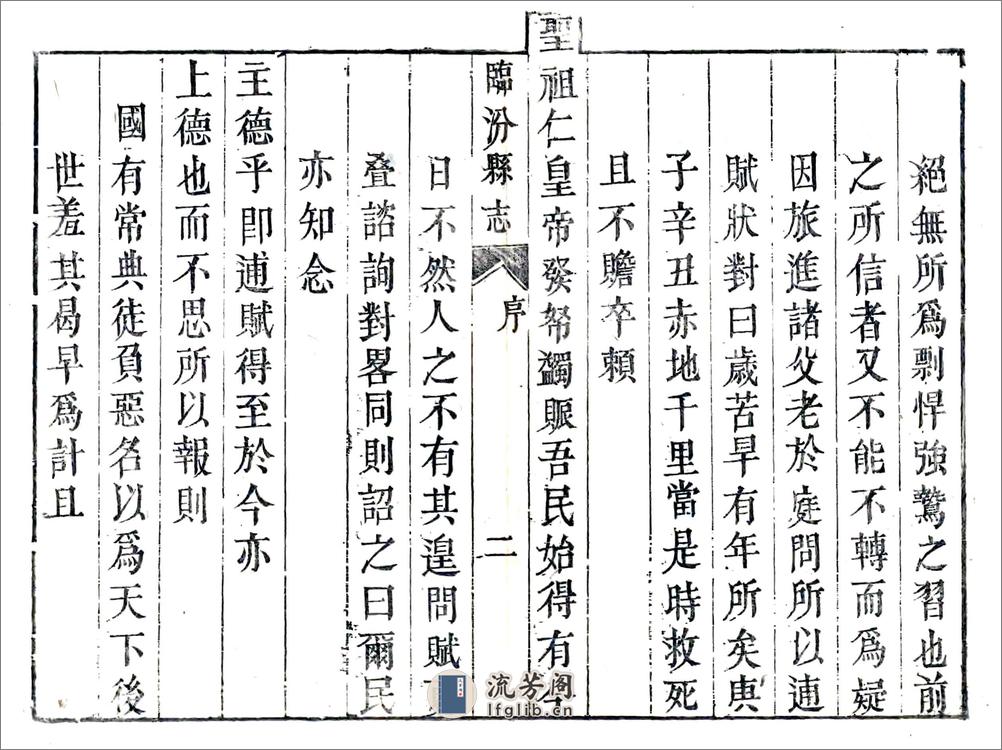 絕無所爲剽悍強鷙之習也前
之所信者又不能不轉而爲疑
因旅進諸父老於庭問所以逋
賦狀對曰歲苦旱有年所矣庚
子辛丑赤地千里當是時救死
且不贍卒賴
聖祖仁皇帝發帑蠲賑吾民始得有
臨汾縣志 序 二
日不然人之不有其遑問賦
叠諮詢對畧同則詔之曰爾民
亦知念
主德乎卽逋賦得至於今亦
上德也而不思所以報則
國有常典徒負惡名以爲天下後
世羞其曷早爲計且
流芳阁
lfglib.cn